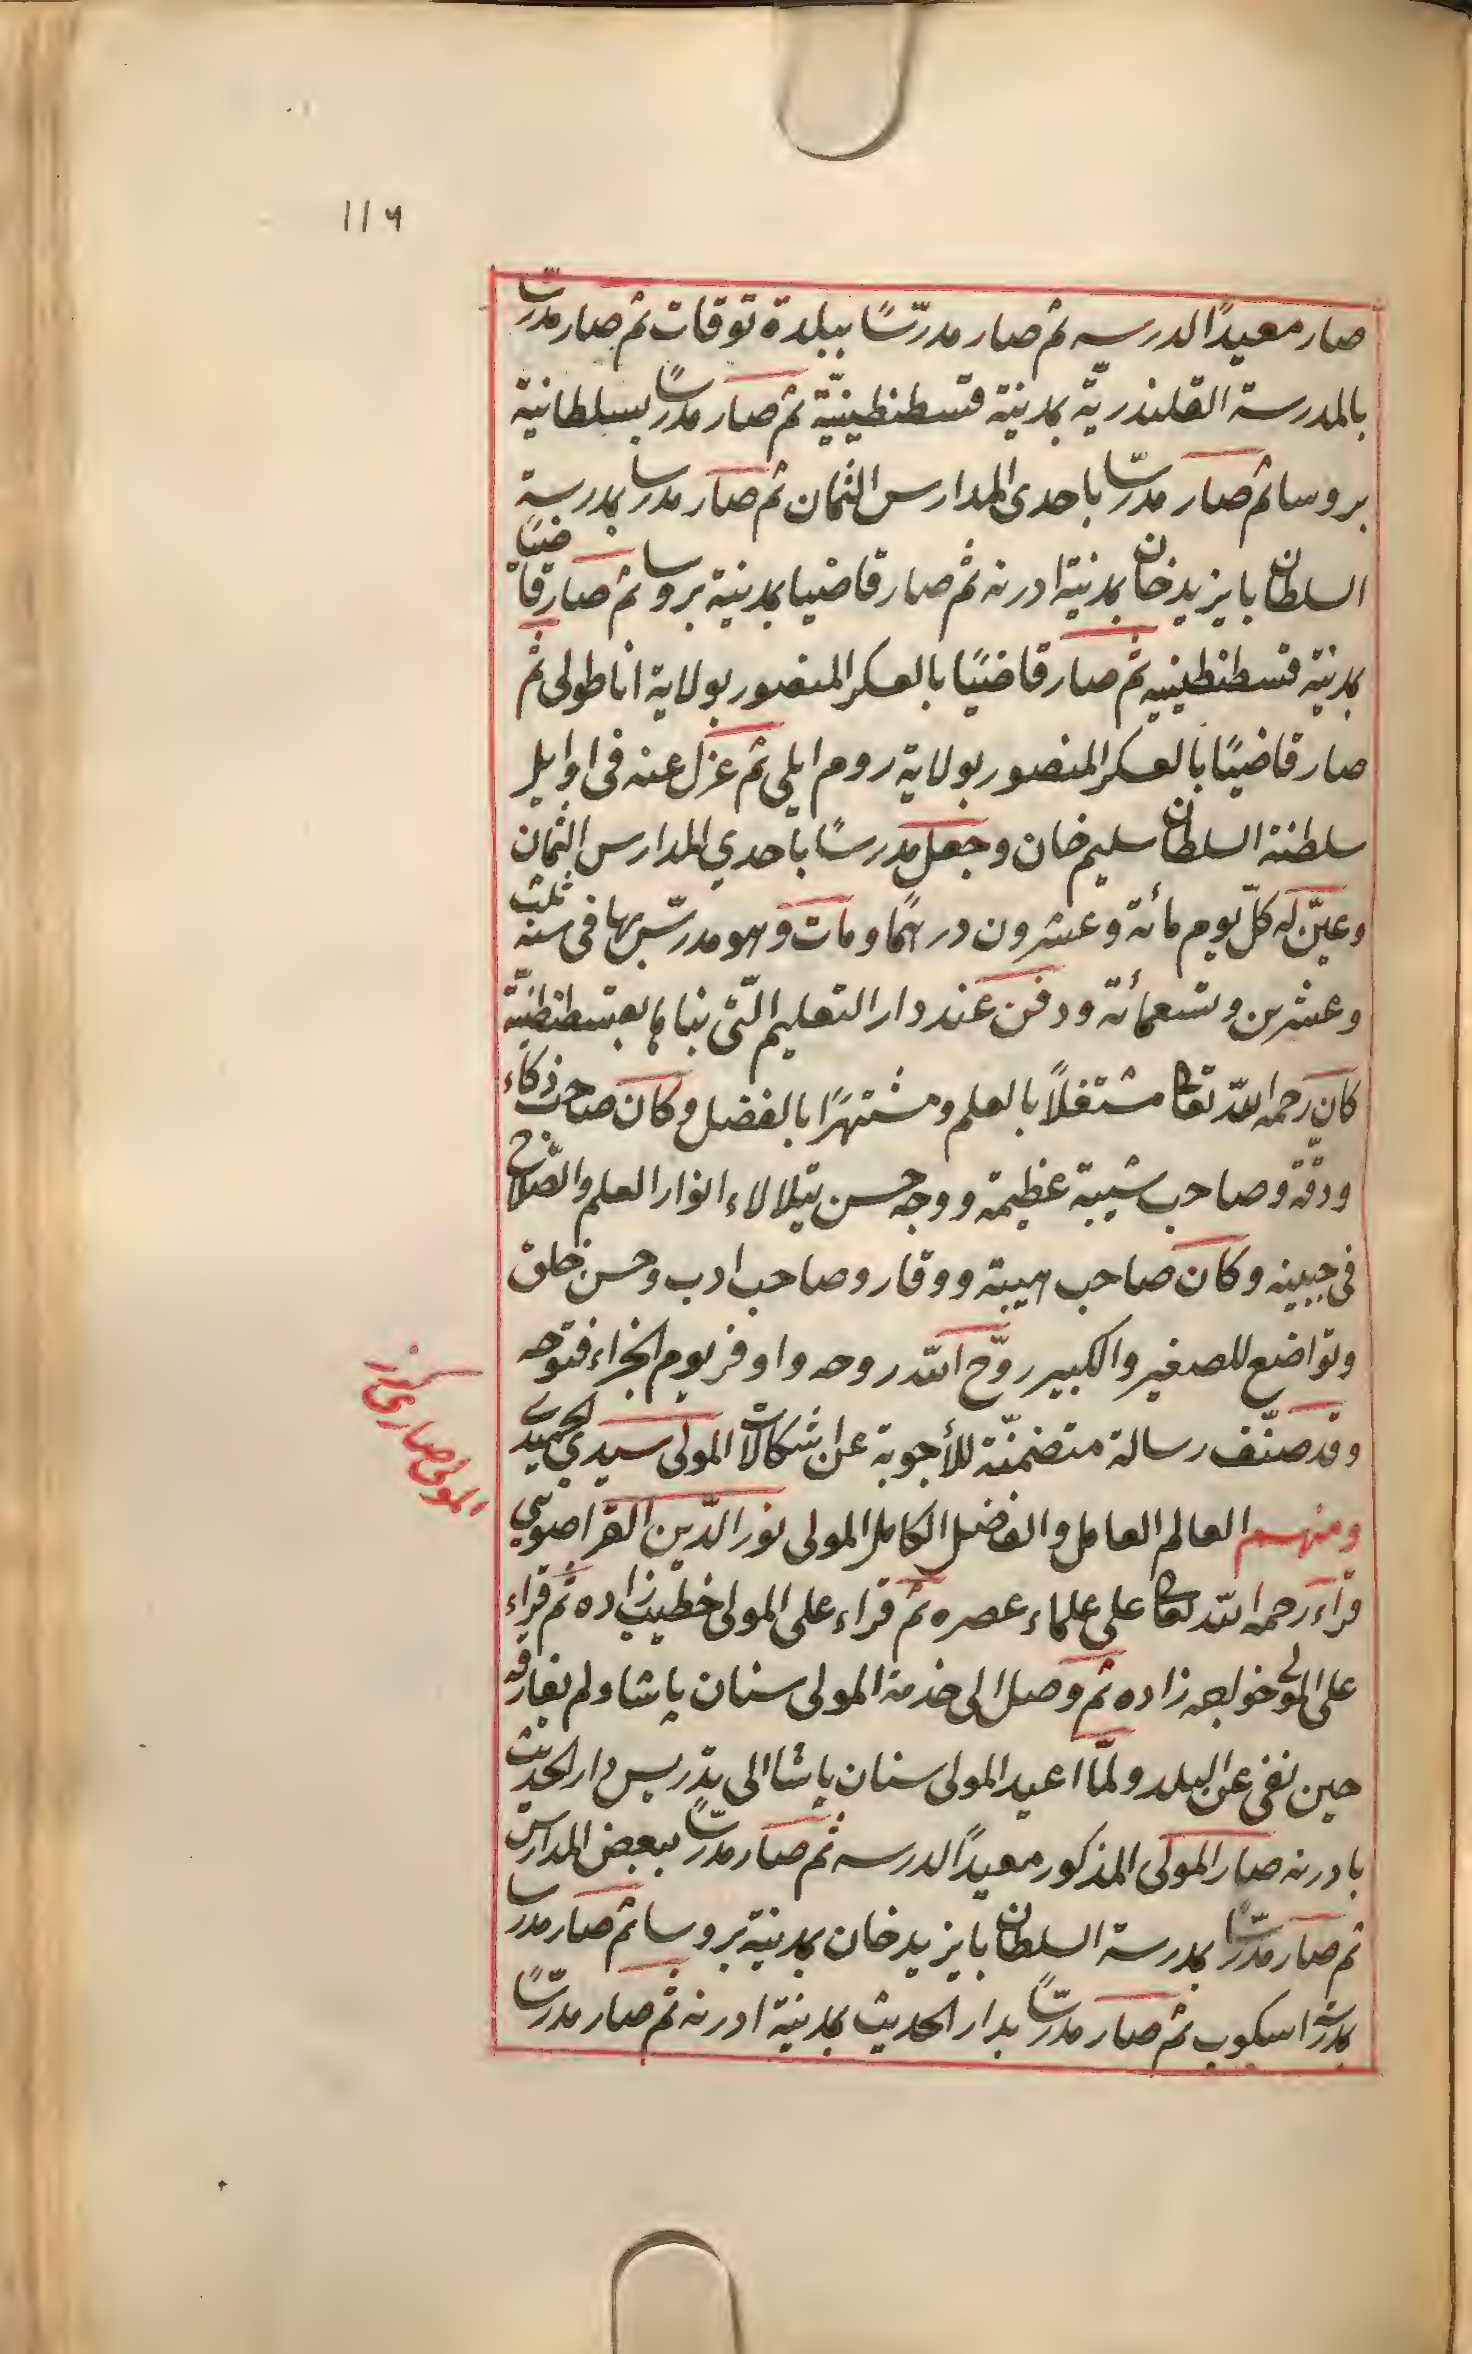 ١١٦
صار معيدًا لدرسه ثم صار مدرّسًا ببلدة توقات ثم صار مدرّسًا
بالمدرسة القلندريّة بمدينة قسطنطينيّة ثم صار مدرسًا بسلطانية
بروسا ثم صار مدرّسا باحدى المدارس الثمان ثم صار مدرسا بمدرسة
السلطان بايزيد خان بمدينة ادرنه ثم صار قاضيا بمدينة بروسا ثم صار قاضيًا
بمدينة قسطنطينيه ثم صار قاضيًا بالعسكر المنصور بولاية اناطولى ثم
صار قاضيًا بالعسكر المنصور بولاية روم ايلى ثم عزل عنه فى اوايل
سلطنة السلطان سليم خان وجعل مدرسًا باحدي المدارس الثمان
وعيّن له كلّ يوم مائة وعشرون درهمًا ومات وهو مدرّس بها فى سنة ثلث
وعشرين وتسعمائة ودفن عند دار التعليم الّتى بناها بقسطنطنيّة
كان رحمه اللّه تعالى مشتغلاً بالعلم ومشتهرًا بالفضل وكان صاحب ذكاء
ودقّة وصاحب شيبة عظيمة ووجه حسن يتلالاء انوار العلم والصّلاح
فى جبينه وكان صاحب هيبة ووقار وصاحب ادب وحسن خلق
وتواضع للصغير والكبير روّح اللّه روحه واوفر يوم الجزاء فتوحه
وقد صنّف رسالة متضمنّة للأجوبة عن اشكالات المولى سيدي الحميدى
ومنهم العالم العامل والفاضل الكامل المولى نور الدّين القراصوى
قراء رحمه اللّه تعالى على علماء عصره ثم قراء على المولى خطيب زاده ثم قراء
على المولى خواجه زاده ثم وصل الى خدمة المولى سنان پاشا ولم يفارقه
حين نفى عن البلد ولمّا اعيد المولى سنان پاشا الى تدريس دار الحديث
بادرنه صار المولى المذكور معيدًا لدرسه ثم صار مدرّسا ببعض المدارس
ثم صار مدرّسًا بمدرسة السلطان بايزيد خان بمدينة بروسا ثم صار مدرسا
بمدرسة اسكوب ثم صار مدرّسًا بدار الحديث بمدينة ادرنه ثم صار مدرّسًا
المولى صارى كرز